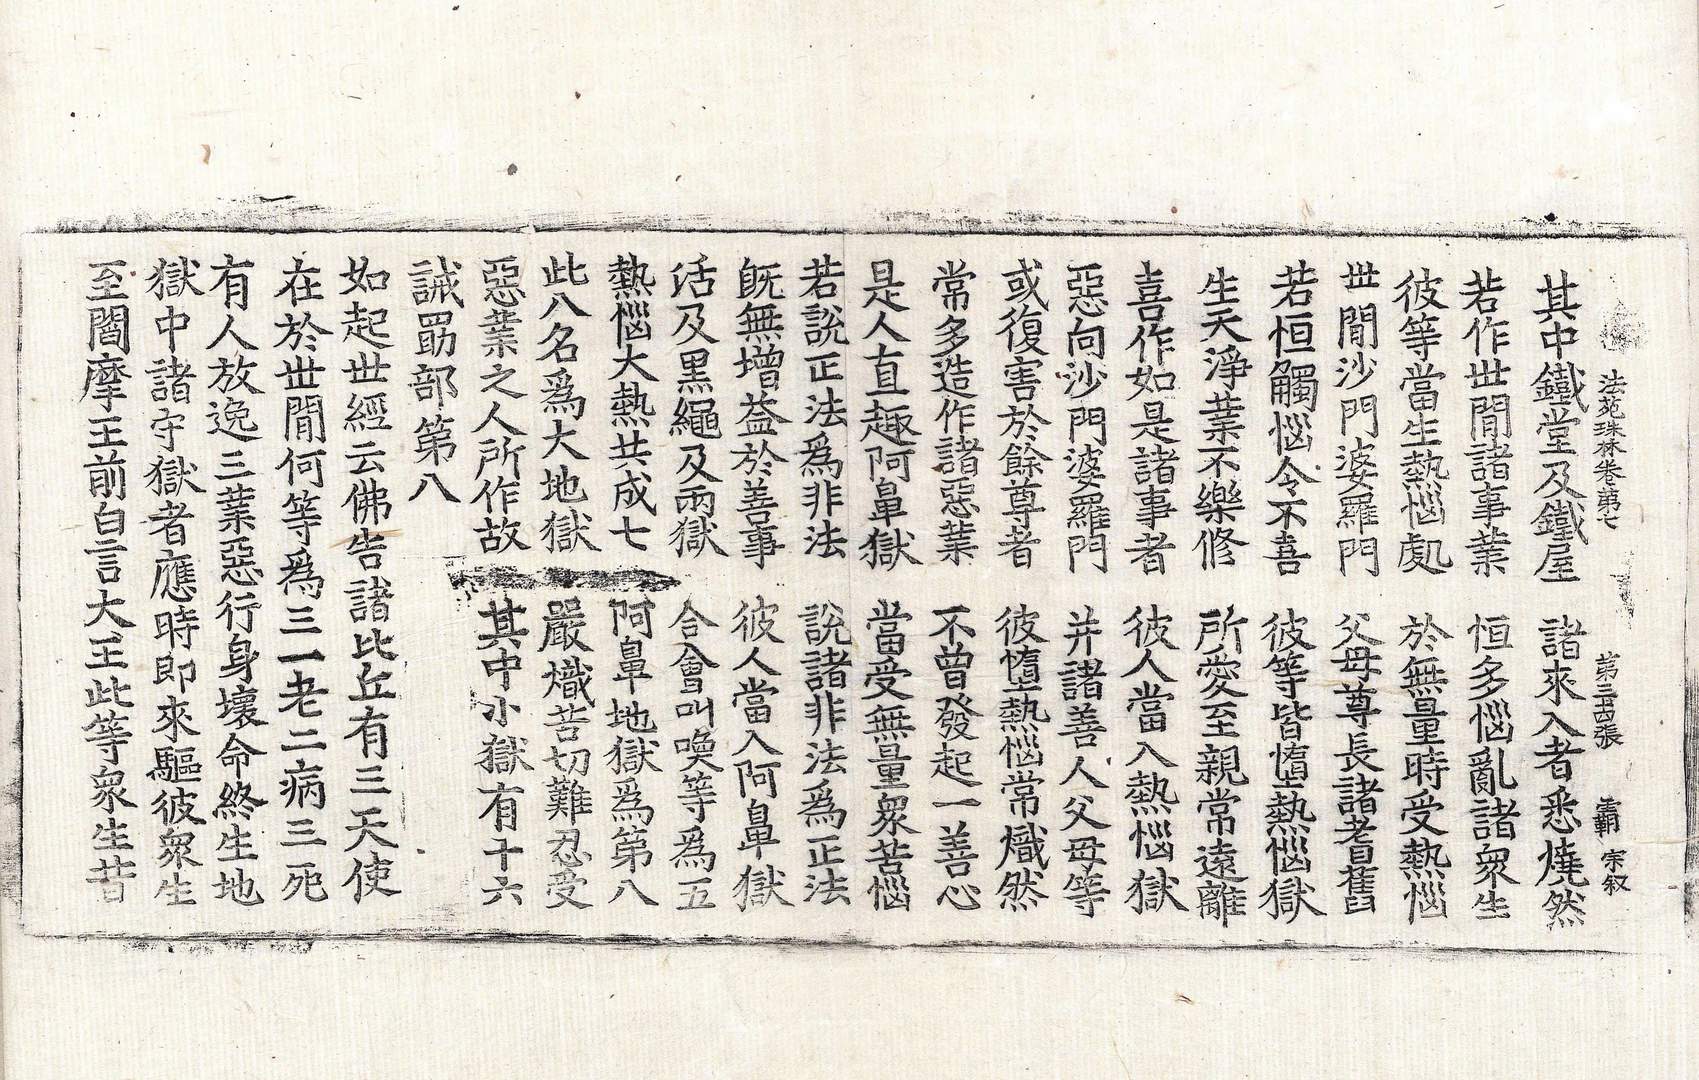 法苑珠林卷第七　第三十四張　霸　宗叙
其中鐵堂及鐵屋　諸來入者悉燒然
若作世閒諸事業　恒多惱亂諸衆生
彼等當生熱惱處　於無量時受熱惱
世閒沙門婆羅門　父母尊長諸耆舊
若恒觸惱令不喜　彼等皆墮熱惱獄
生天淨業不樂修　所愛至親常遠離
喜作如是諸事者　彼人當入熱惱獄
惡向沙門婆羅門　并諸善人父母等
或復害於餘尊者　彼墮熱惱常熾然
常多造作諸惡業　不曾發起一善心
是人直趣阿鼻獄　當受無量衆苦惱
若說正法爲非法　說諸非法爲正法
旣無增益於善事　彼人當入阿鼻獄
活及黑繩及兩獄　合會叫喚等爲五
熱惱大熱共成七　阿鼻地獄爲第八
此八名爲大地獄　嚴熾苦切難忍受
惡業之人所作故　其中小獄有十六
誡勗部第八
如起世經云佛告諸比丘有三天使
在於世閒何等爲三一老二病三死
有人放逸三業惡行身壞命終生地
獄中諸守獄者應時即來驅彼衆生
至閻摩王前白言大王此等衆生昔